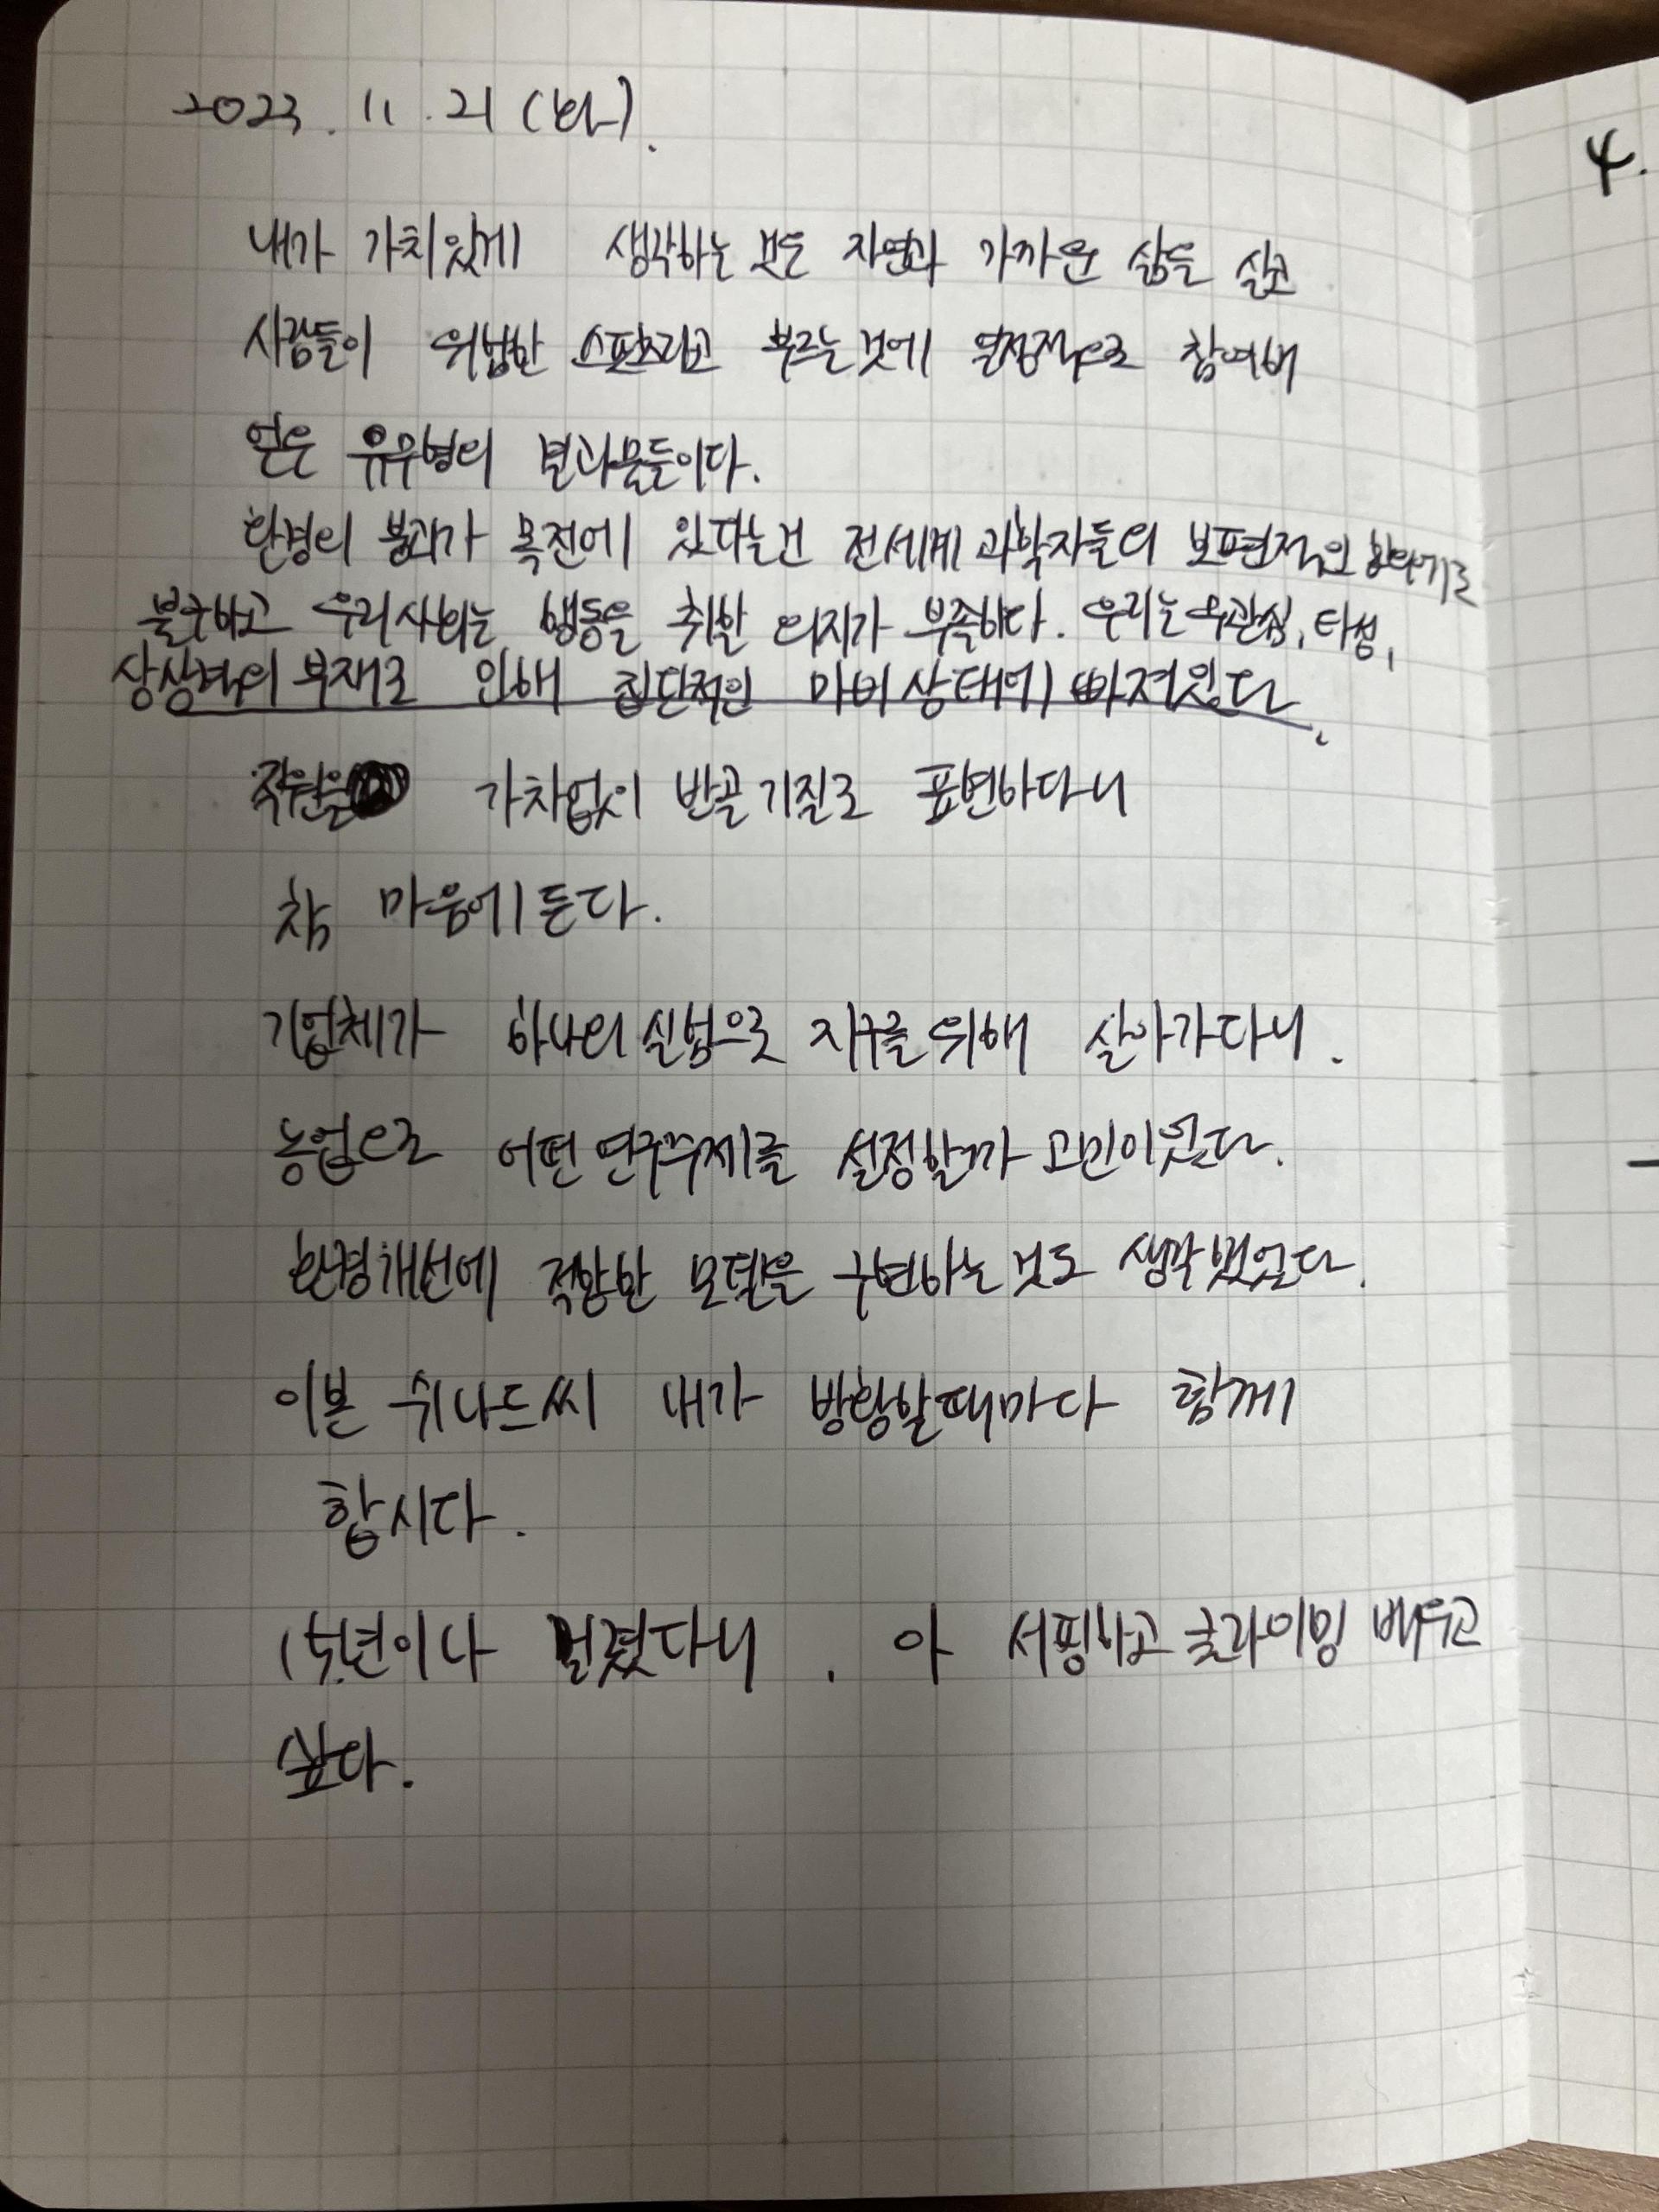 2023. 11. 21 (화).
4.
내가 가치있게 생각하는 것은 자연과 가까운 삶을 살고
사람들이 위험한 스포츠라고 부르는것에 열정적으로 참여해
얻은 유무형의 결과물들이다.
환경의 붕괴가 목전에 있다는건 전세계 과학자들의 보편적인
불구하고 우리사회는 행동을 취할 의지가 부족하다. 우리는 무관심, 타성,
상상력의 부재로 인해 집단적인 마비상태에 빠져있다.
직원을 가차없이 반골기질로 표현하다니
참 마음에든다.
기업체가 하나의 실험으로 지구를위해 살아가다니.
농업으로 어떤 연구주제를 설정할까 고민이었다.
환경개선에 적합한 모델을 구현하는것도 생각했었다.
이본 쉬나드씨 내가 방황할때마다 함께
합시다.
15년이나 걸렸다니. 아 서핑하고 클라이밍 배우고
싶다.